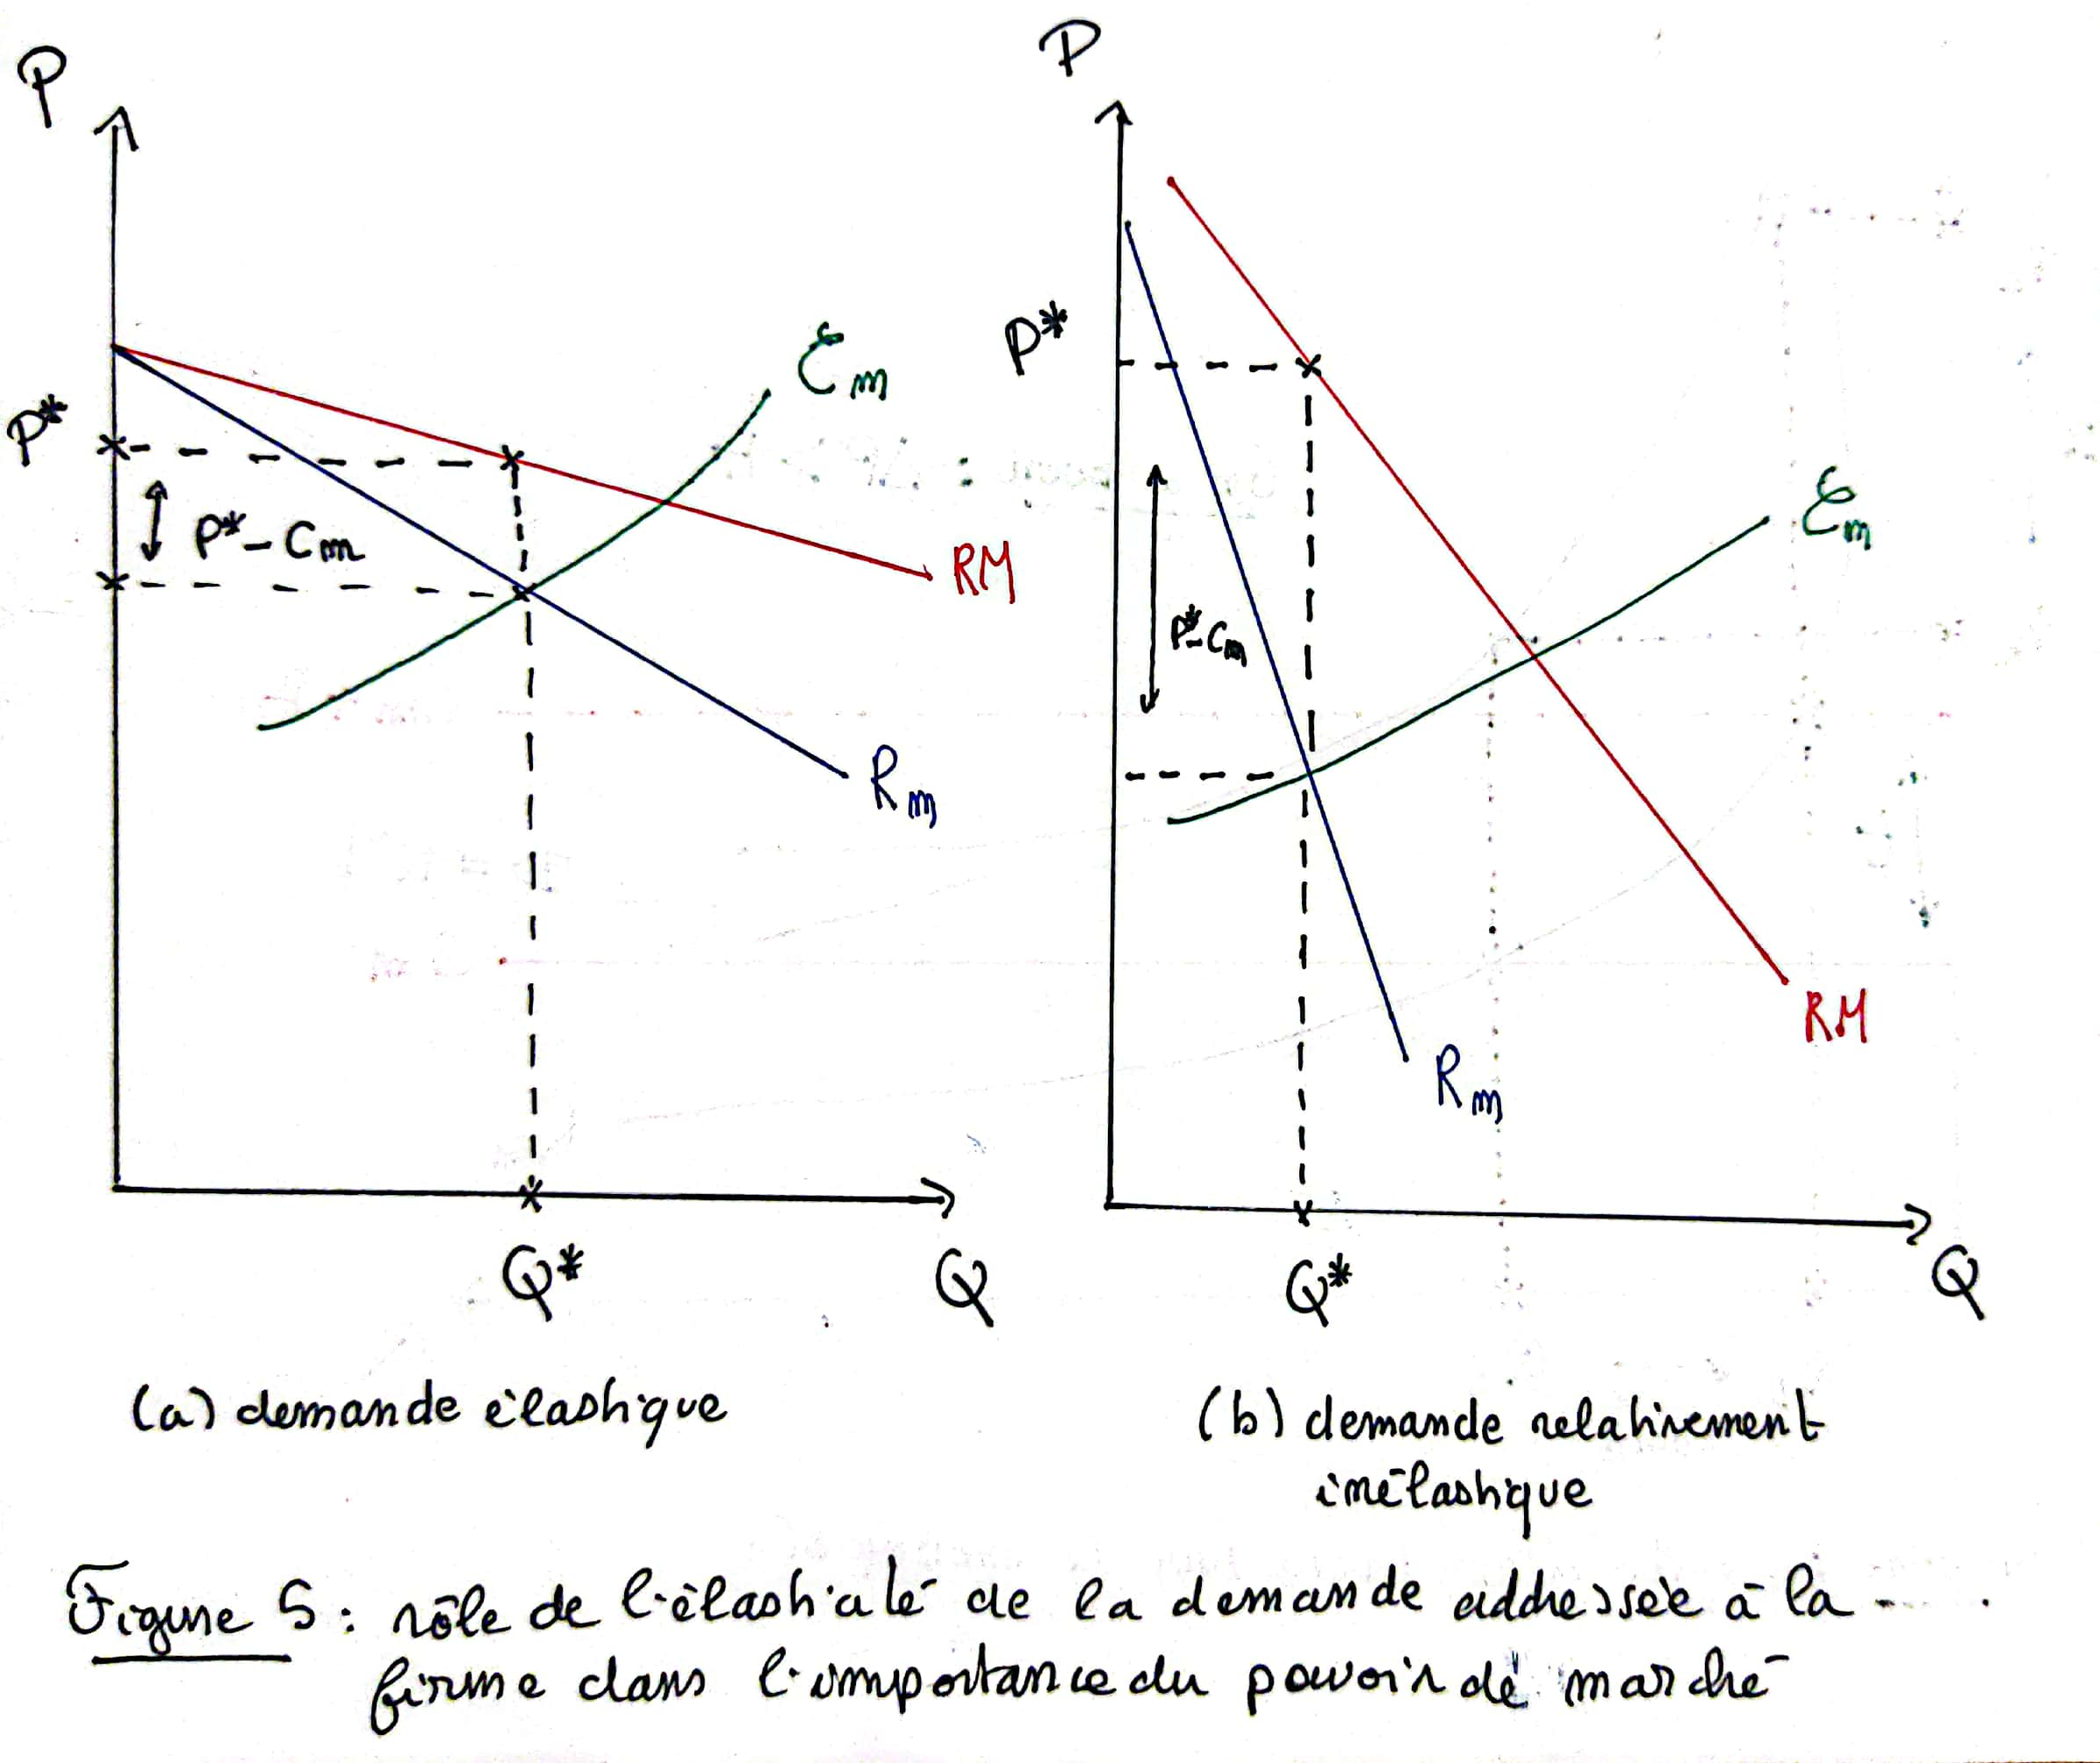 P
P*
P* - Cm
Cm
RM
Rm
Q*
Q
(a) demande élastique
P
P*
P*-Cm
Cm
RM
Rm
Q*
Q
(b) demande relativement
inélastique
Figure 5 : rôle de l'élasticité de la demande addressée à la
firme dans l'importance du pouvoir de marché